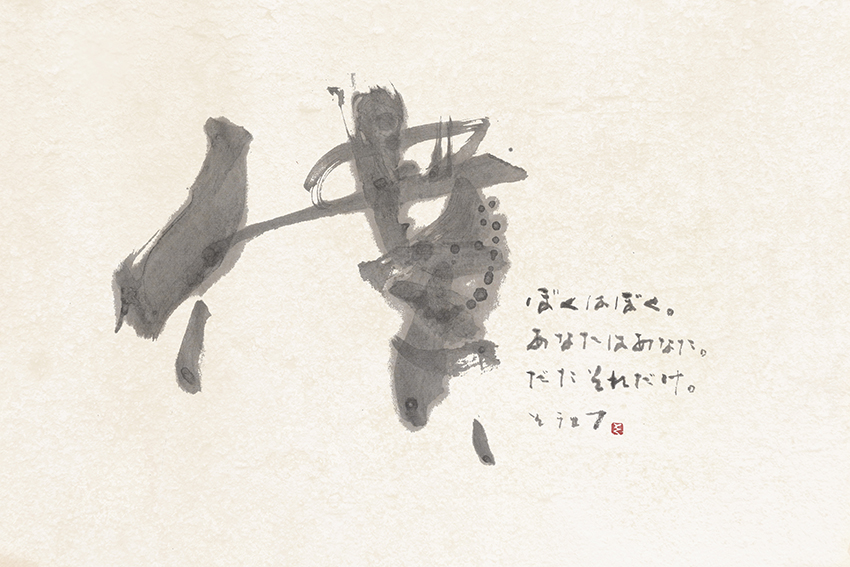 僕
ぼくはぼく。
あなたはあなた。
ただそれだけ。